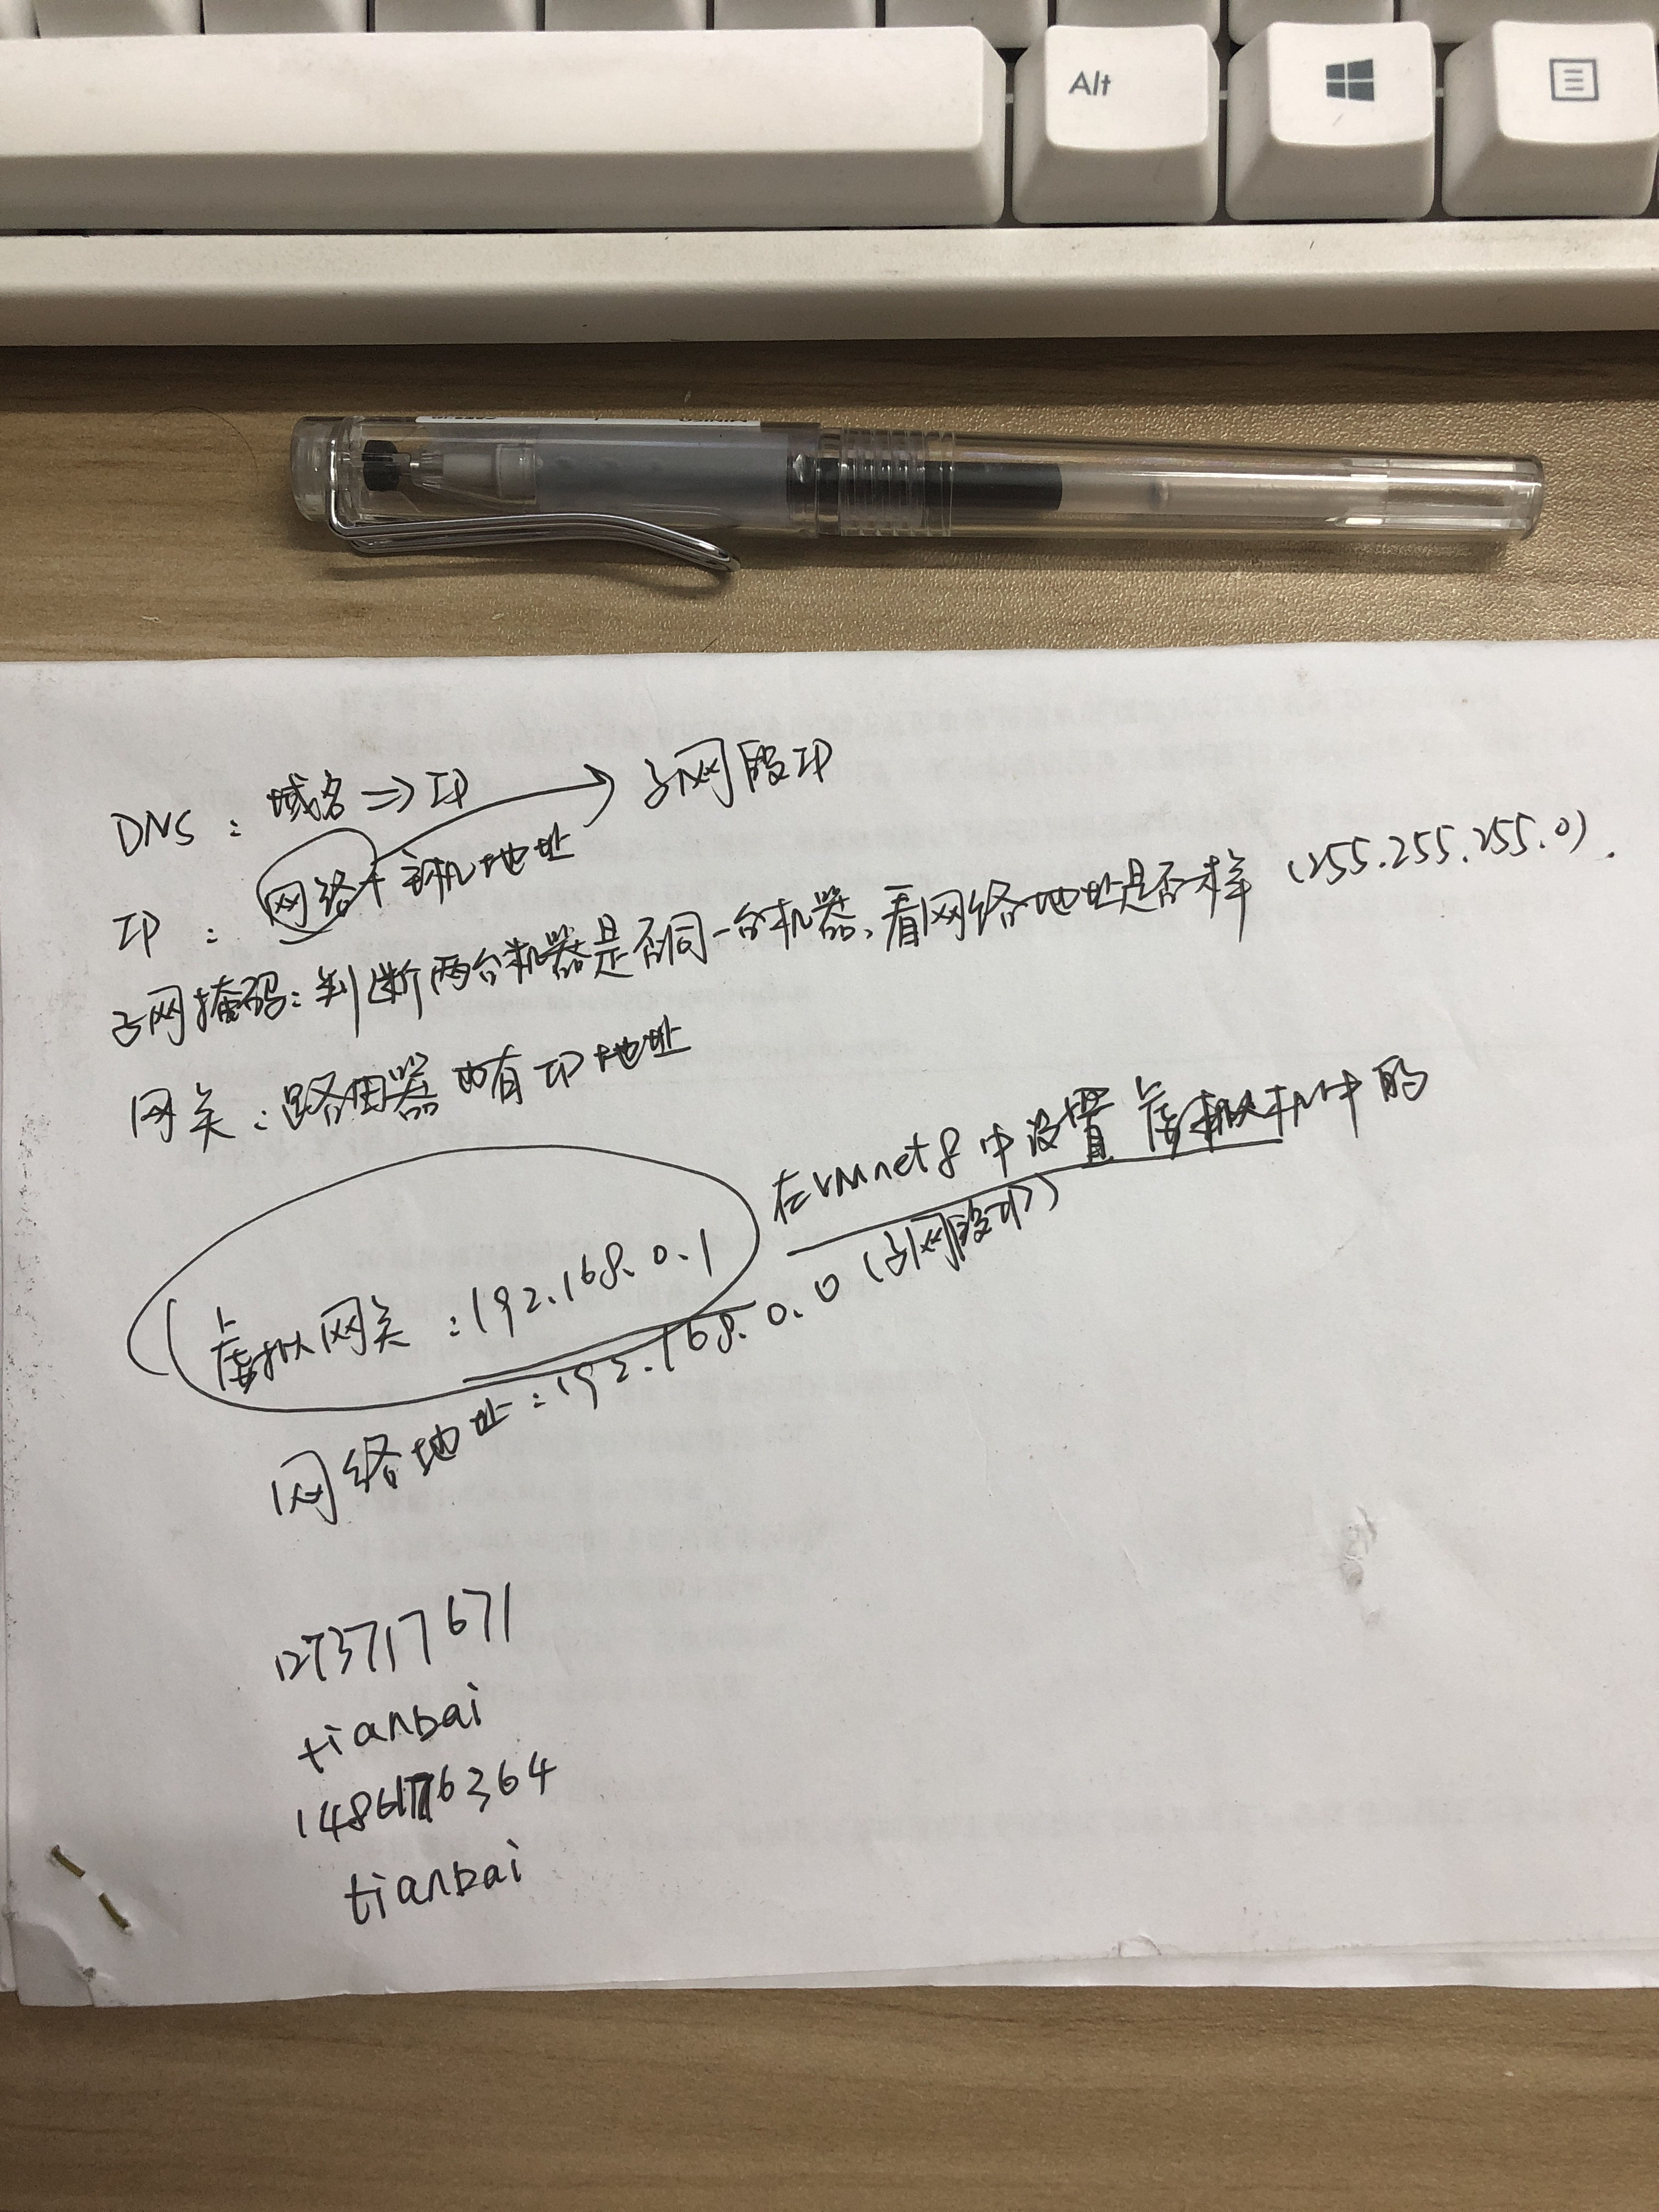 Alt
DNS：域名⇒IP
子网段IP
IP：网络+主机地址
子网掩码：判断两台机器是否同一台机器、看网络地址是否一样（255.255.255.0）.
网关：路由器也有IP地址
在VMnet8中设置虚拟机中的
虚拟网关：192.168.0.1
网络地址：192.168.0.0（子网段IP）
1273717671
tianbai
tianbai